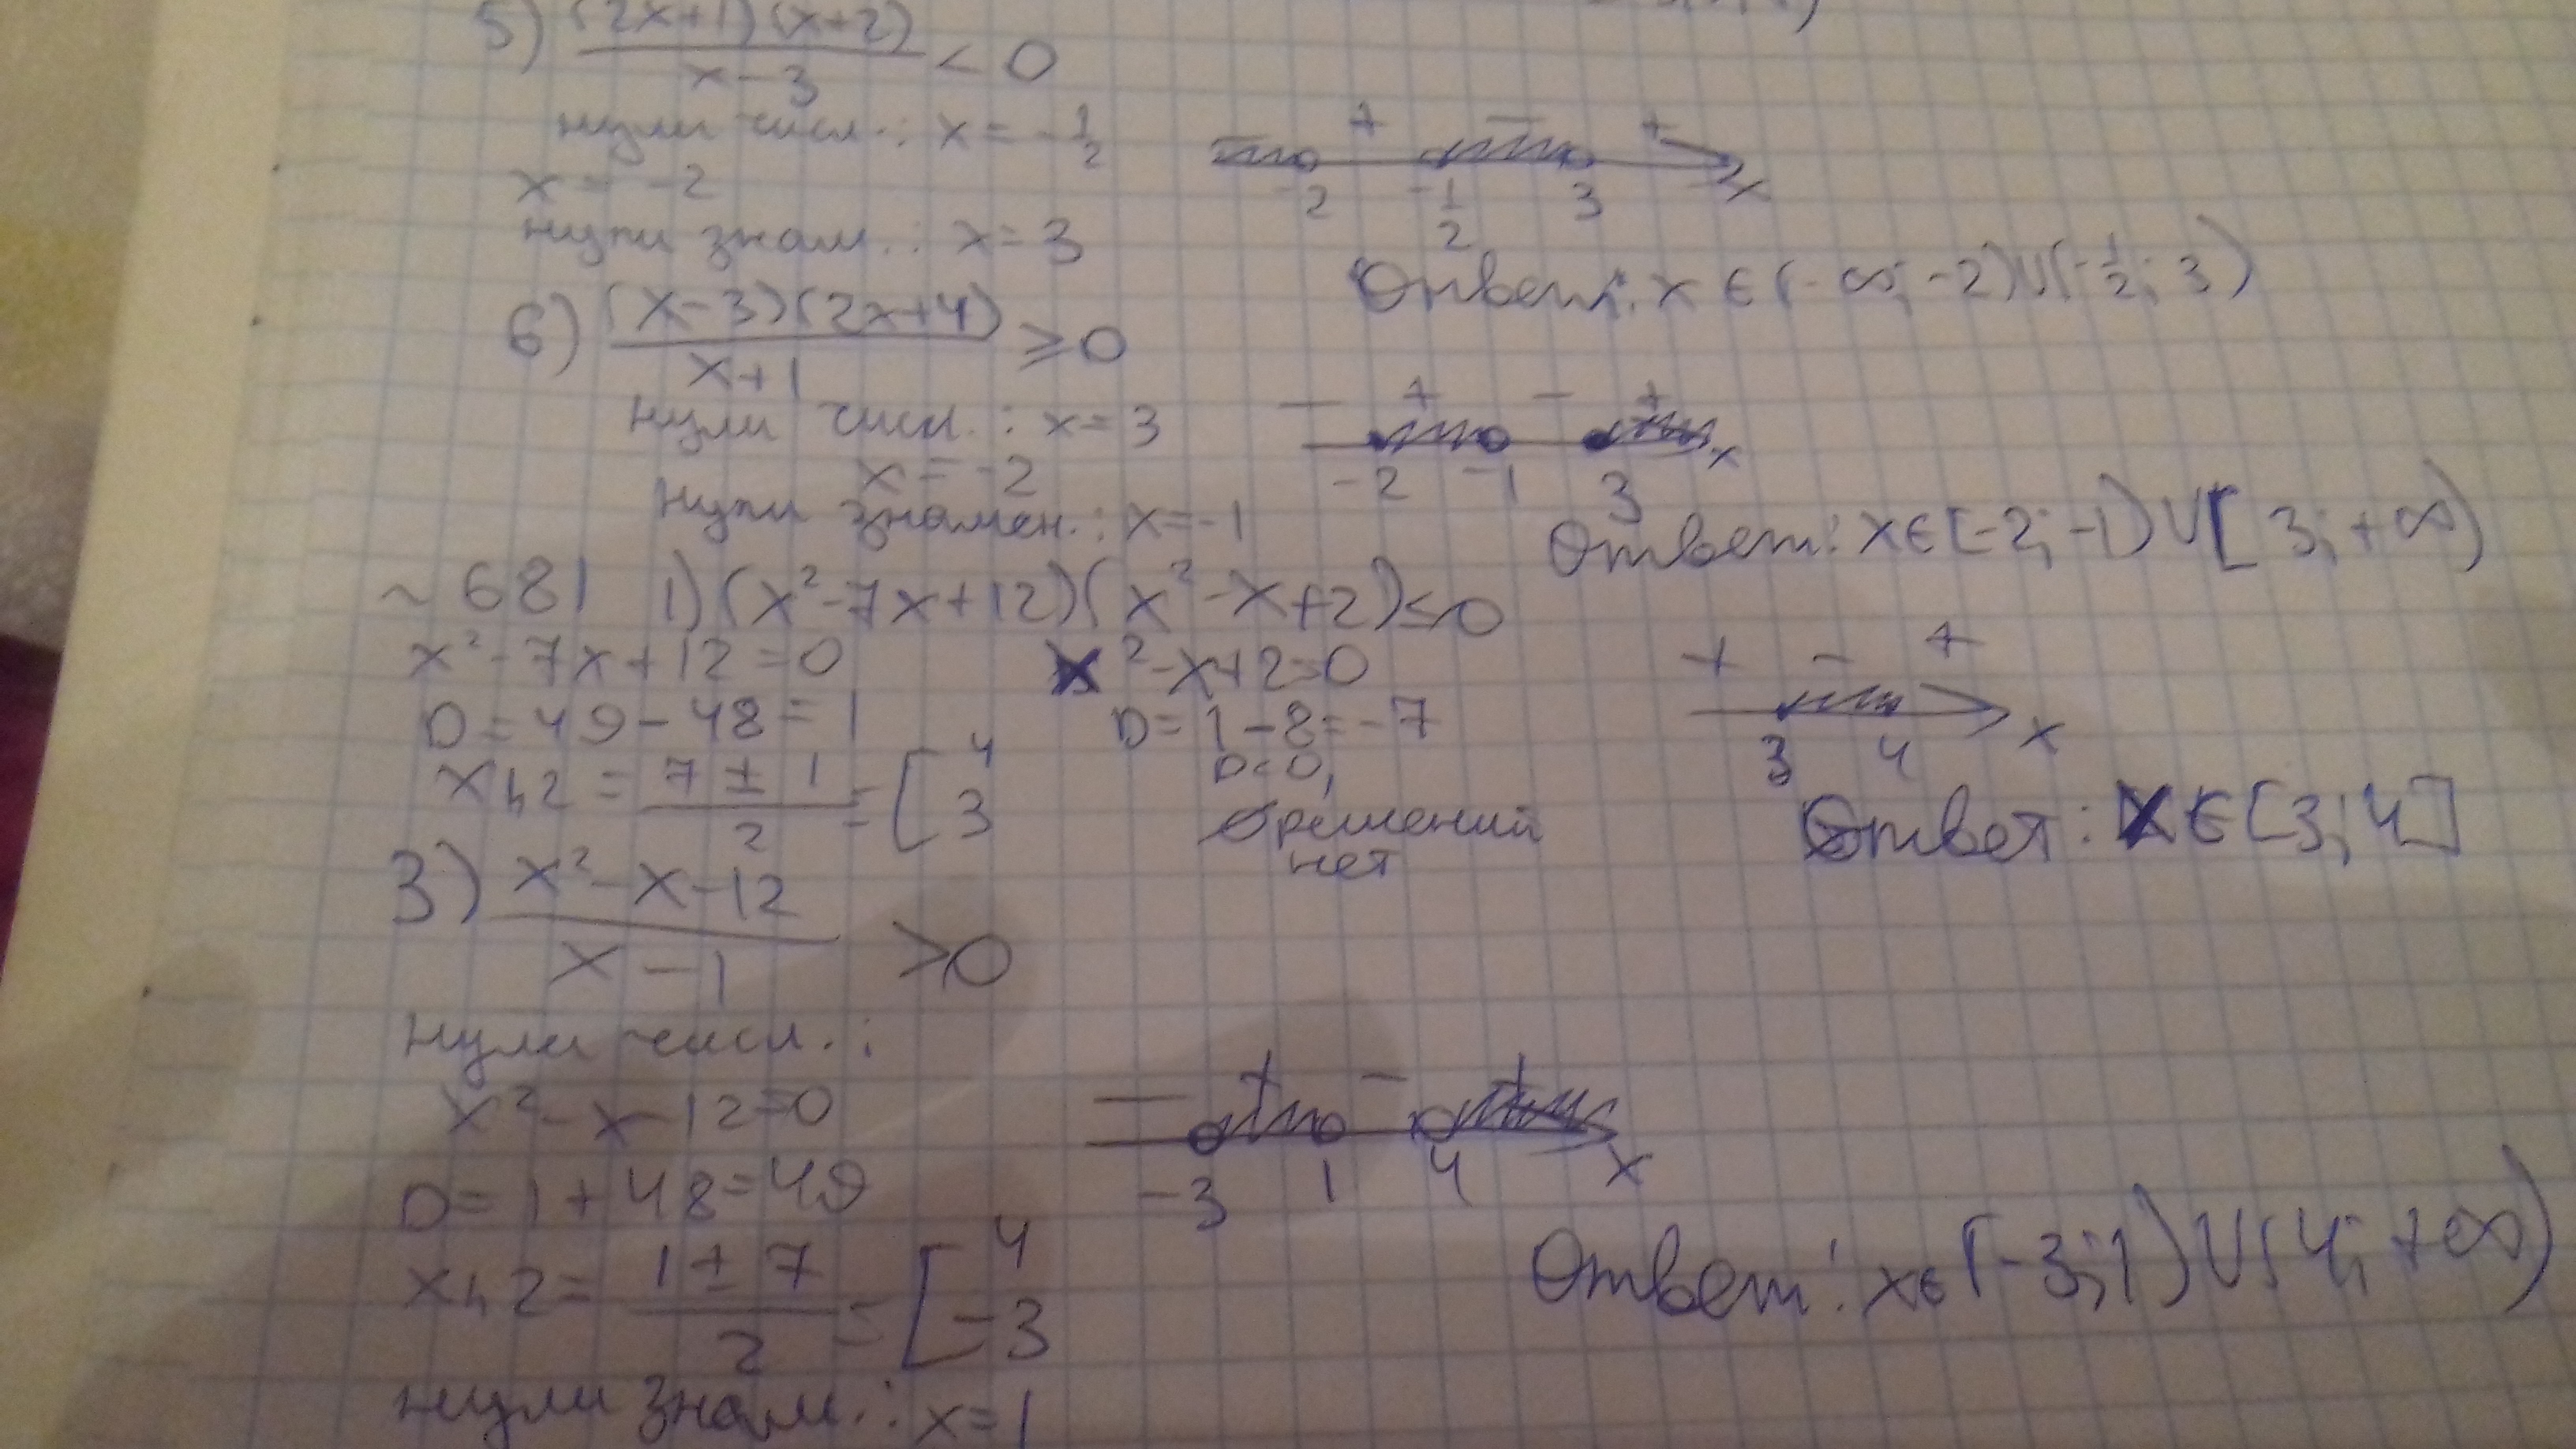 5) (2x+1)(x+2)
x-3 < 0
нули числ.: x = -1/2
x = -2
- + - +
-2 -1/2 3 x
нули знам.: x = 3
Ответ: x ∈ (-∞; -2)∪(-1/2; 3)
6) (x-3)(2x+4)
x+1 ≥ 0
нули числ.: x = 3
x = -2
- + - +
-2 -1 3 x
нули знамен.: x = -1
Ответ: x ∈ [-2; -1)∪[3; +∞)
~ 681 1) (x²-7x+12)(x²-x+2) ≤ 0
x²-7x+12 = 0
D = 49-48 = 1
x1,2 = 7 ± 1 / 2 = [ 4 3
x²-x+2=0
D = 1-8 = -7
D<0,
решений
нет
+ - +
3 4 x
Ответ: x ∈ [3; 4]
3) x²-x-12
x-1 > 0
нули числ.:
x²-x-12=0
D = 1+48=49
x1,2 = 1 ± 7 / 2 = [ 4 -3
нули знам.: x=1
- + - +
-3 1 4 x
Ответ: x ∈ (-3; 1)∪(4; +∞)